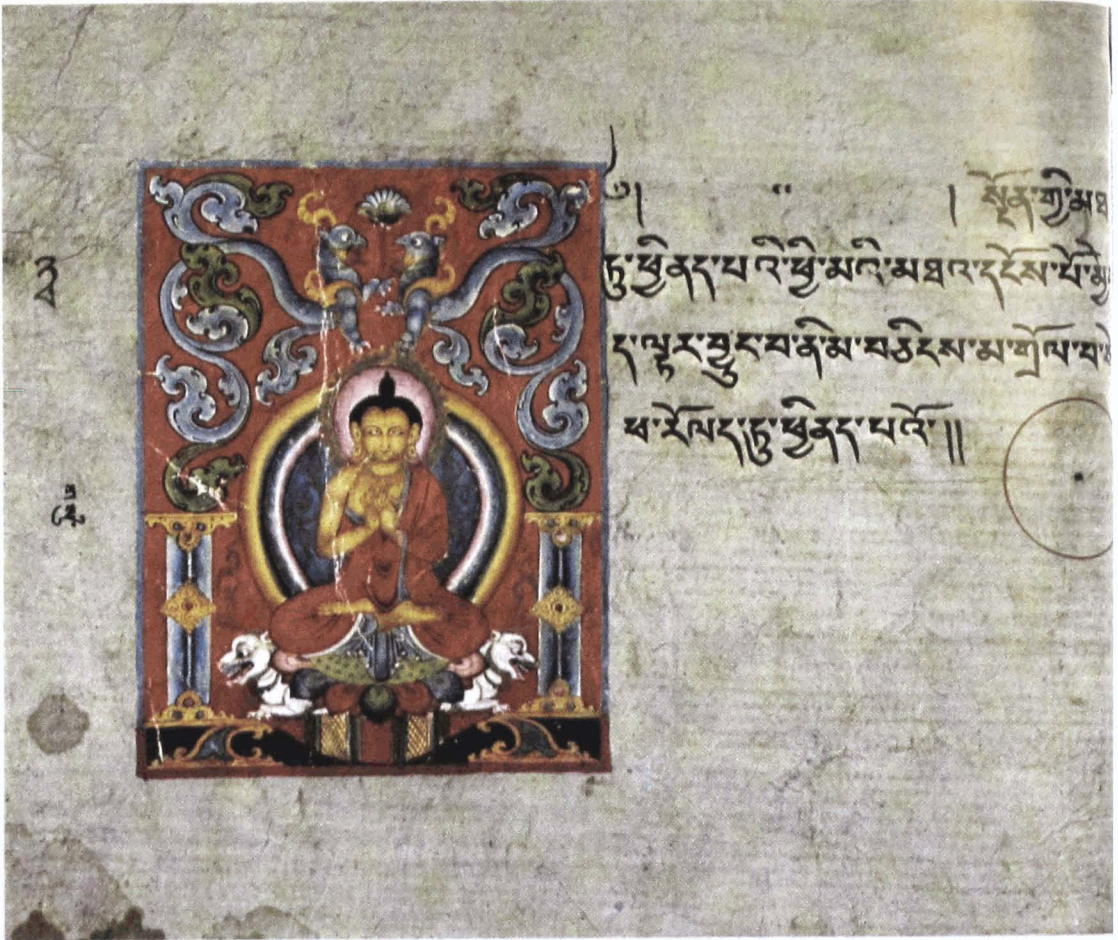 ༄། །སྔོན་གྱི་མཐ
ཏུ་ཕྱིནད་པ་འི་ཕྱི་མའི་མཐའ་དངོས་པོ་མྱེ
ད་ལྟར་བྱུང་བ་ནི་མ་བཅིངས་མ་གྲོལ་བ་
ཕ་རོལད་ཏུ་ཕྱིནད་པའོ་།།